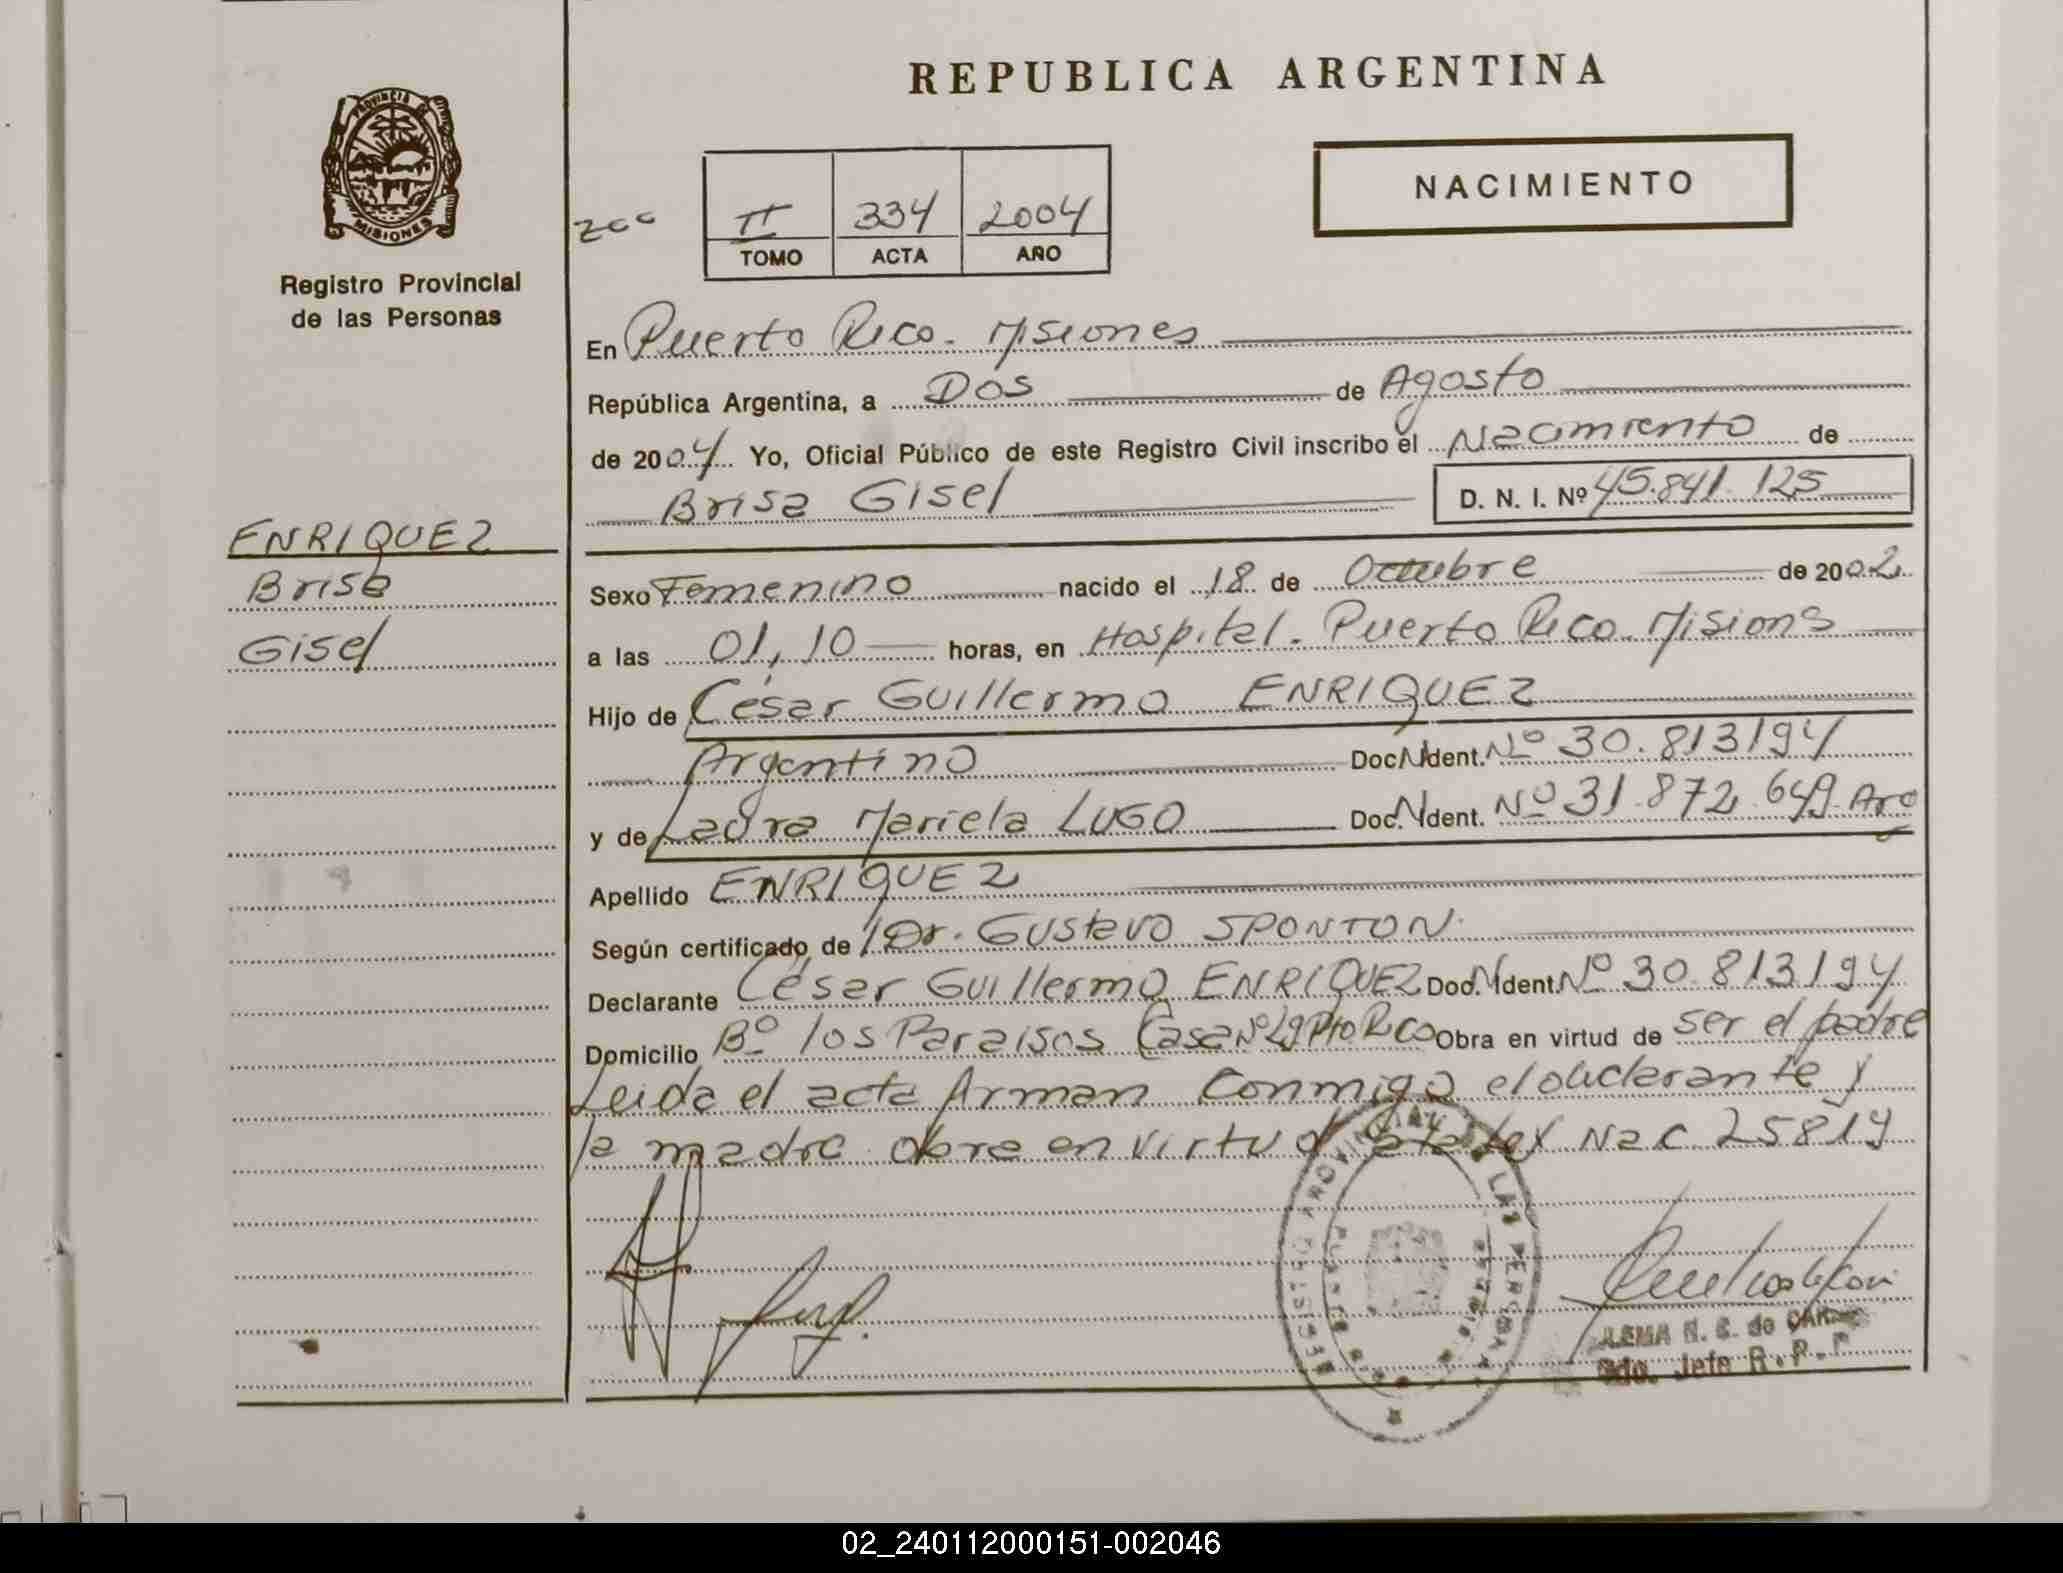 REPUBLICA ARGENTINA
PROVINCIA DE
MISIONES
Registro Provincial
de las Personas
NACIMIENTO
II 334 2004
TOMO ACTA AÑO
En Puerto Rico. Misiones
República Argentina, a Dos de Agosto
de 2004 Yo, Oficial Público de este Registro Civil inscribo el Nacimiento de
Brisa Gisel D. N. I. Nº 45.841.125
ENRIQUEZ
Brisa
Gisel
Sexo Femenino nacido el 18 de Octubre de 2002
a las 01,10 horas, en Hospital. Puerto Rico. Misions
Hijo de César Guillermo ENRIQUEZ
Argentino Doc. Ident. Nº 30.813194
y de Laura Mariela LUGO Doc. Ident. Nº 31.872.649 Arg
Apellido ENRIQUEZ
Según certificado de Dr. Gustavo SPONTON.
Declarante César Guillermo ENRIQUEZ Doc. Ident. Nº 30.813.194
Domicilio Bº los Paraisos Casa Nº 29 Pto Rico Obra en virtud de ser el padre
Leida el acta firman conmigo el declarante y
la madre. obra en virtud Ley Nac 25819
DE LAS PERSONAS
Jefe R.P.P
02_240112000151-002046